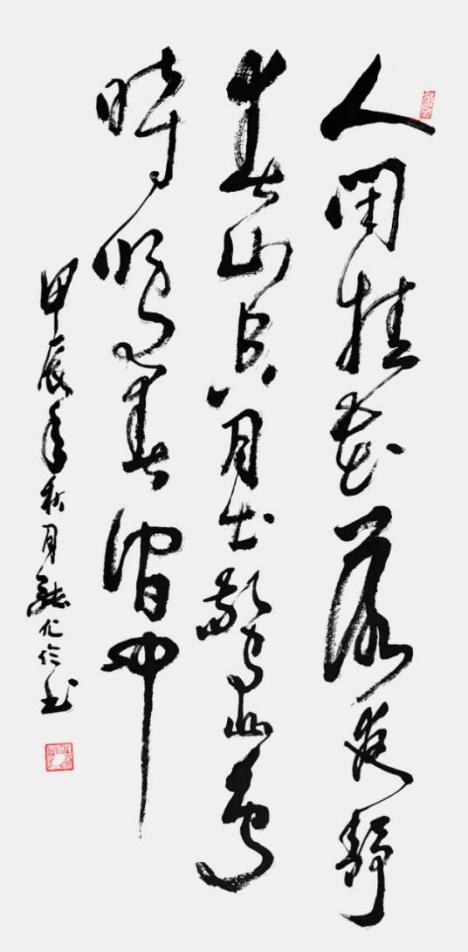 人閑桂花落夜靜
春山空月出驚山鳥
時鳴春澗中
甲辰年秋月書